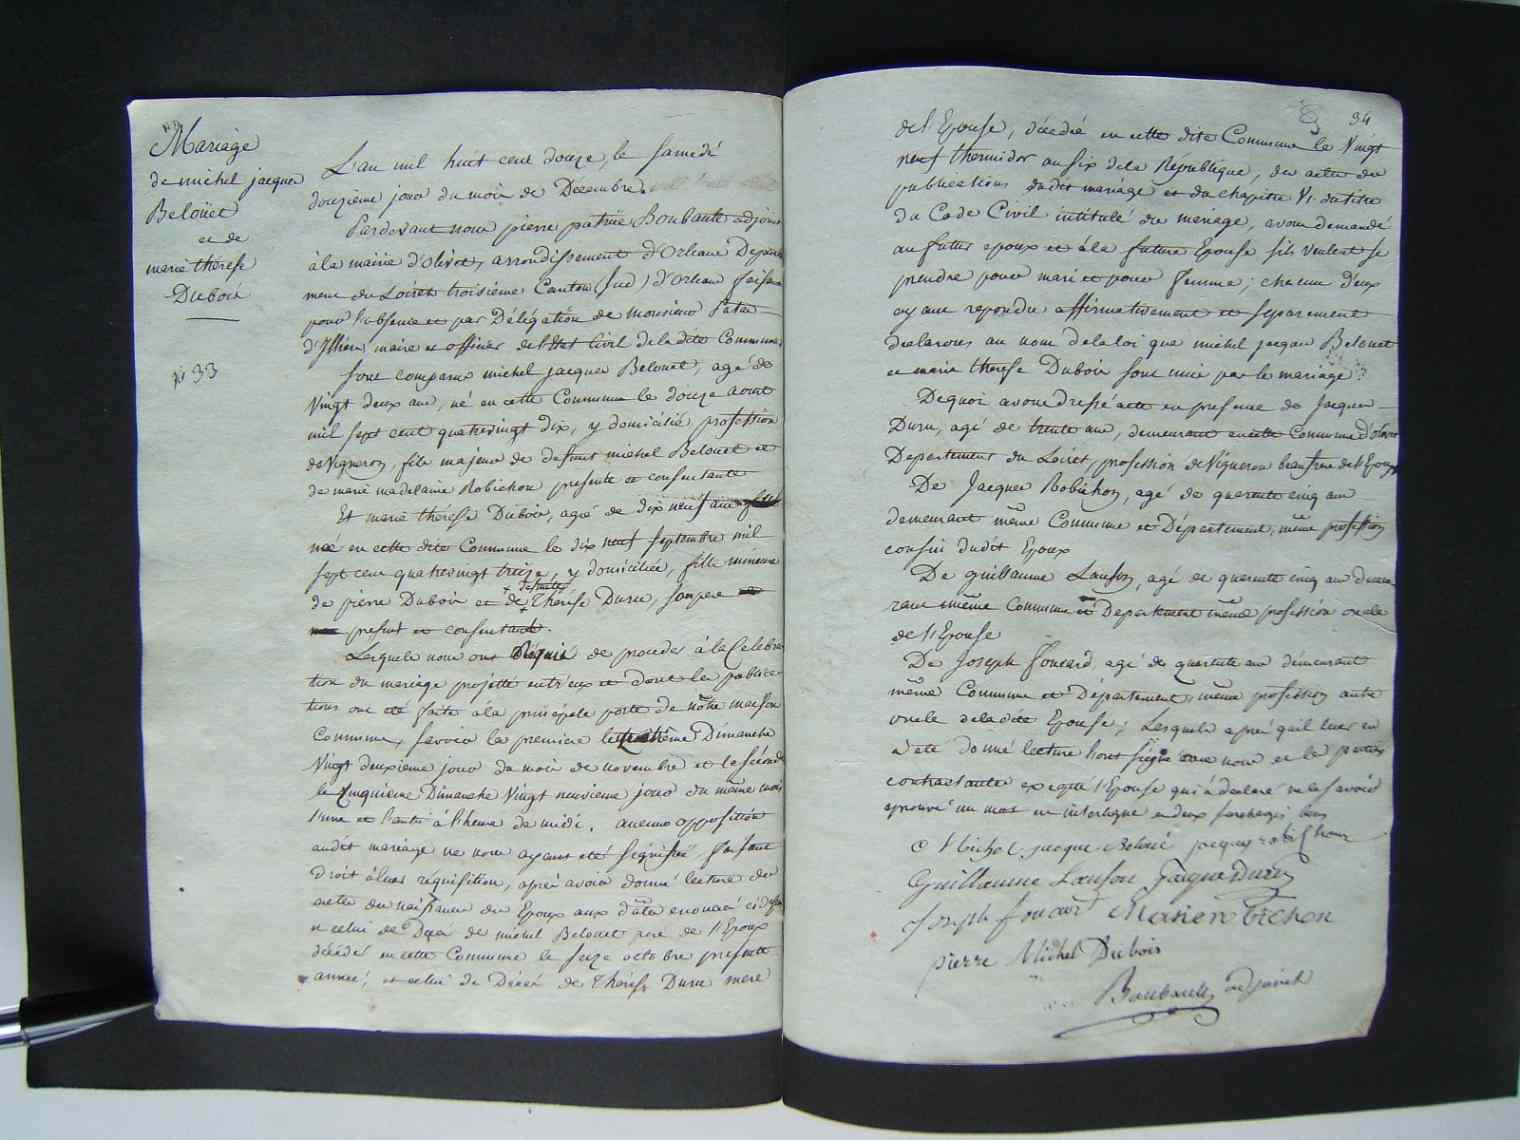 Mariage
de michel jacques
Beloüet
et de
marie thérèse
Dubois
N° 33
L'an mil huit cent douze, le samedi
douzième jour du mois de Décembre
Pardevant nous pierre patrice Boubault adjoint
à la mairie d'olivet, arrondissement d'Orléans Departe
ment du Loiret troisième Canton (sud) d'Orleans faisant
pour l'absence et par Délégation de monsieur Patas
d'Illiers maire et officier de l'Etat Civil de la dite Commune
sont comparus michel jacques Belouet, agé de
Vingt deux ans, né en cette Commune le douze aoust
mil sept cent quatrevingt dix, y domicilié profession
de Vigneron, fils majeur de defunt michel Belouet et
de marie madelaine Robichon presente et consentante
Et marie thérèse Dubois, agée de dix neuf ans
née en cette dite Commune le dix neuf septembre mil
sept cent quatrevingt treize, y domiciliée, fille mineure
de pierre Dubois et de défunte Thérèse Duru, son pere
present et consentant.
Lesquels nous ont Requis de proceder à la Celebra
tion du mariage projetté entr'eux et dont les publica
tions ont eté faites à la principale porte de nôtre maison
Commune, savoir la premiere le quatrième Dimanche
Vingt deuxieme jour du mois de novembre et la séconde
le Cinquieme Dimanche Vingt neuvieme jour du même mois
l'une et l'autre à l'heure de midi. aucune opposition
audit mariage ne nous ayant eté signifiée, faisant
Droit à leur réquisition, après avoir donné lecture des
actes de naissance des Epoux aux dates enoncées ci dessus
et celui de Décès de michel Belouet pere de l'Epoux
décédé en cette Commune le seize octobre presente
année; et celui de Décès de Thérèse Duru mere
34
de l'Epouse, décédée en cette dite Commune le Vingt
neuf thermidor an six de la République, des actes des
publications dudit mariage et du chapitre VI. du titre
du Code Civil intitulé du mariage, avons demandé
au futur epoux et à la future Epouse s'ils veulent se
prendre pour mari et pour femme; chacun d'eux
ayant repondu affirmativement et séparement
declarons au nom de la loi que michel jacques Belouet
et marie therese Dubois sont unis par le mariage
De quoi avons dressé acte en presence de Jacques
Duru, agé de trente ans, demeurant en cette Commune d'olivet
Departement du Loiret, profession de Vigneron beaufrere de l'Epoux
De Jacques Robichon, agé de quarante cinq ans
demeurant même Commune et Département, même profession
cousin dudit Epoux
De guillaume Lanson, agé de quarante cinq ans demeu
rant même Commune et Departement même profession oncle
de l'Epouse
De Joseph foucard, agé de quarante ans démeurant
même Commune et Département, même profession autre
oncle de la dite Epouse; Lesquels après qu'il leur en
a eté donné lecture l'ont signé avec nous et les parties
contractantes excepté l'Epouse qui a declaré ne le savoir
aprouvé un mot en interligne en deux surcharges bons
Michel jacque Belouet jacques robichon
Guillaume Lanson Jaque Duru
Joseph foucard Marie robichon
pierre Michel Dubois
Boubault adjoint